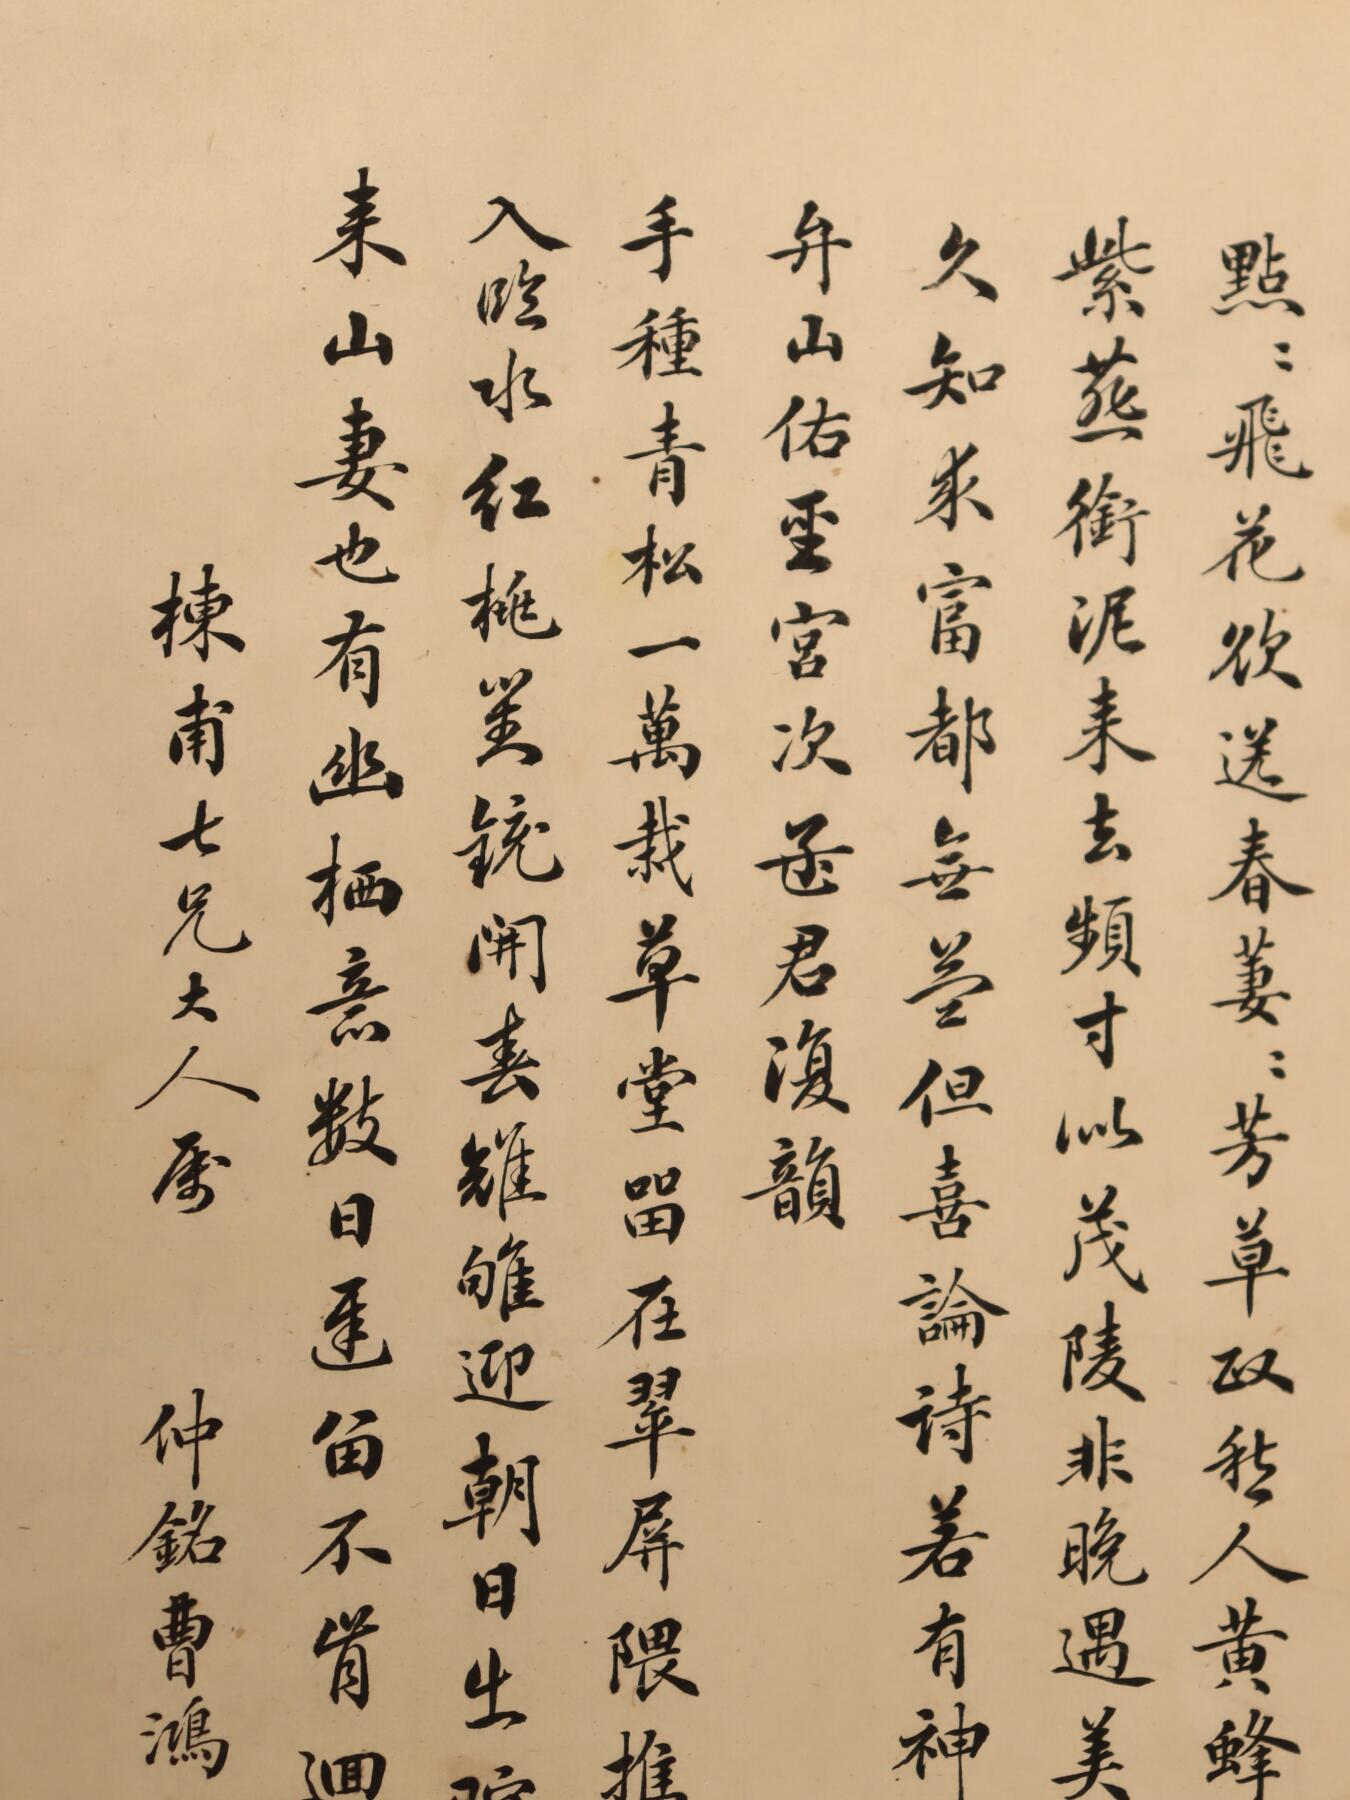 點〻飛花欲送春萋〻芳草政愁人黃蜂
紫燕銜泥来去頻寸似茂陵非晚遇美
久知求富都無益但喜論詩若有神
弁山佑聖宮次孟君復韻
手種青松一萬栽草堂留在翠屏隈推
入臨水紅桃並鏡開春雉雊迎朝日出
来山妻也有幽栖意數日遲留不肯迴
棟甫七兄大人屬 仲銘曹鴻